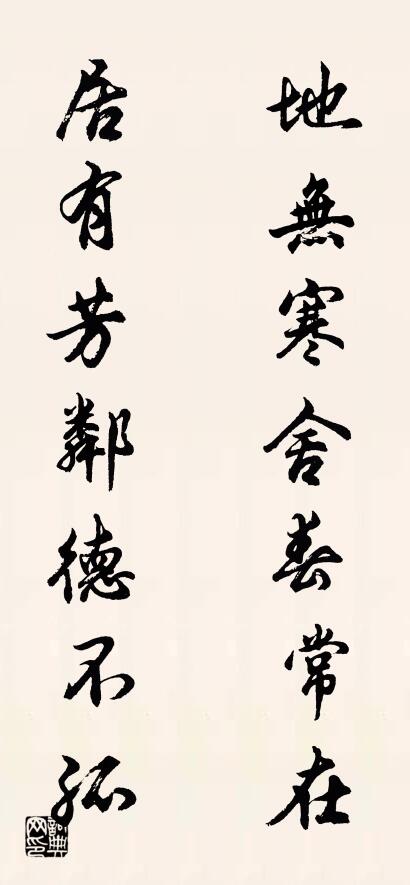 地無寒舍春常在
居有芳鄰德不孤